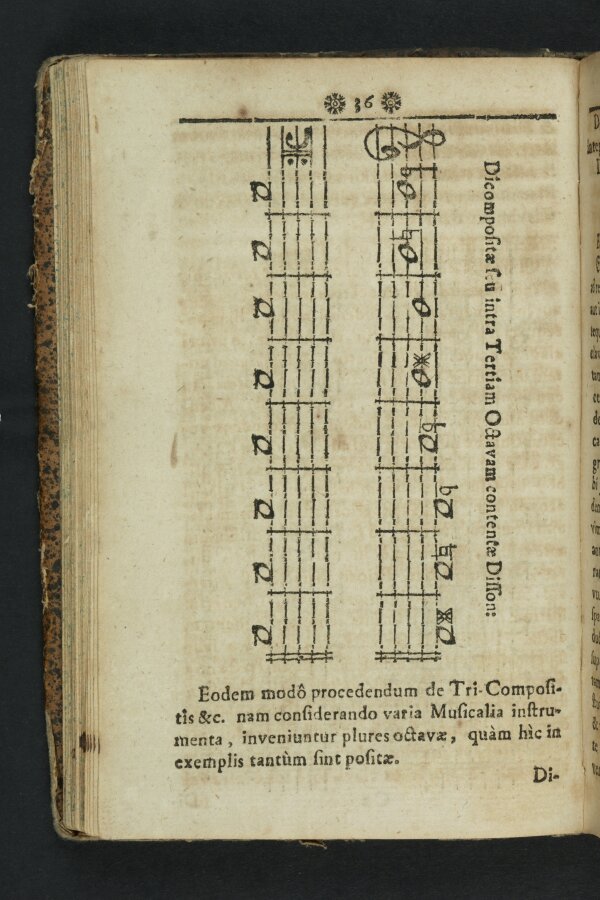 36
Dicompositæ seu intra Tertiam Octavam contentæ Disson:
Eodem modô procedendum de Tri-Composi-
tis &c. nam considerando varia Musicalia instru-
menta, inveniuntur plures octavæ, quàm hìc in
exemplis tantùm sint positæ.
Di-